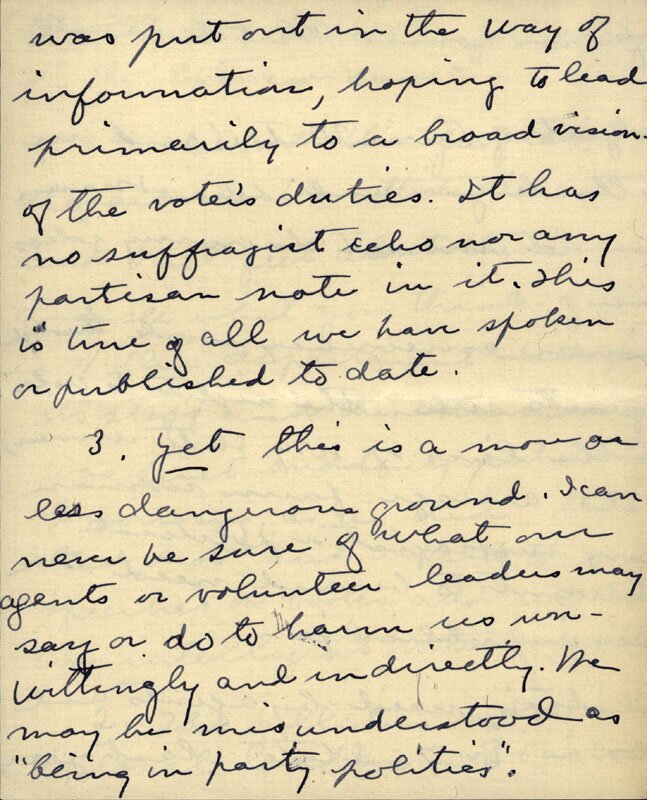 was put out in the way of
information, hoping to lead
primarily to a broad vision
of the voter's duties. It has
no suffragist echo nor any
partisan note in it. This
is true of all we have spoken
or published to date.
3. Yet this is a more or
less dangerous ground. I can
never be sure of what our
agents or volunteer leaders may
say or do to harm us un-
wittingly and indirectly. We
may be misunderstood as
"being in party politics".